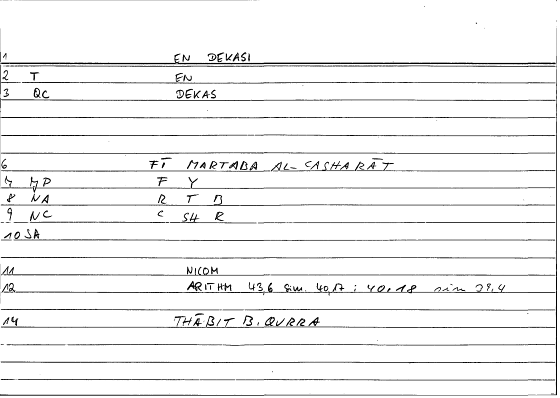 1 EN DEKASI
2 T EN
3 QC DEKAS
6 FĪ MARTABA AL-CASHARĀT
7 MP F Y
8 NA R T B
9 NC C SH R
10 JA
11 NICOM
12 ARITHM 43,6 sim. 40,17 ; 40,18 sim 39,4
14 THĀBIT B. QURRA